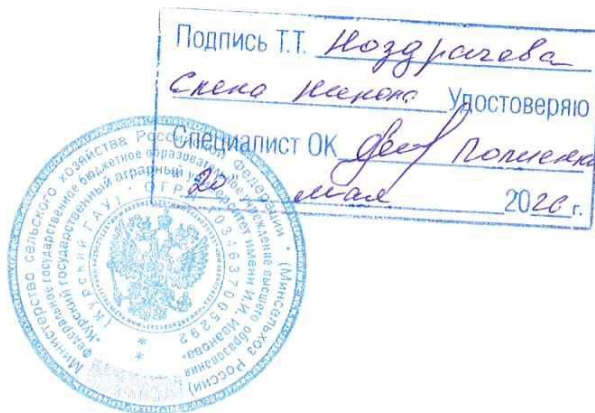 Подпись Т.Т. Ноздрачева
Удостоверяю
Специалист ОК
20 мая 2026 г.
Министерство сельского хозяйства Российской Федерации • (Минсельхоз России)
Федеральное государственное бюджетное образовательное учреждение высшего образования
"Курский государственный аграрный университет имени И.И. Иванова"
(Курский ГАУ) • ОГРН 1034637005292